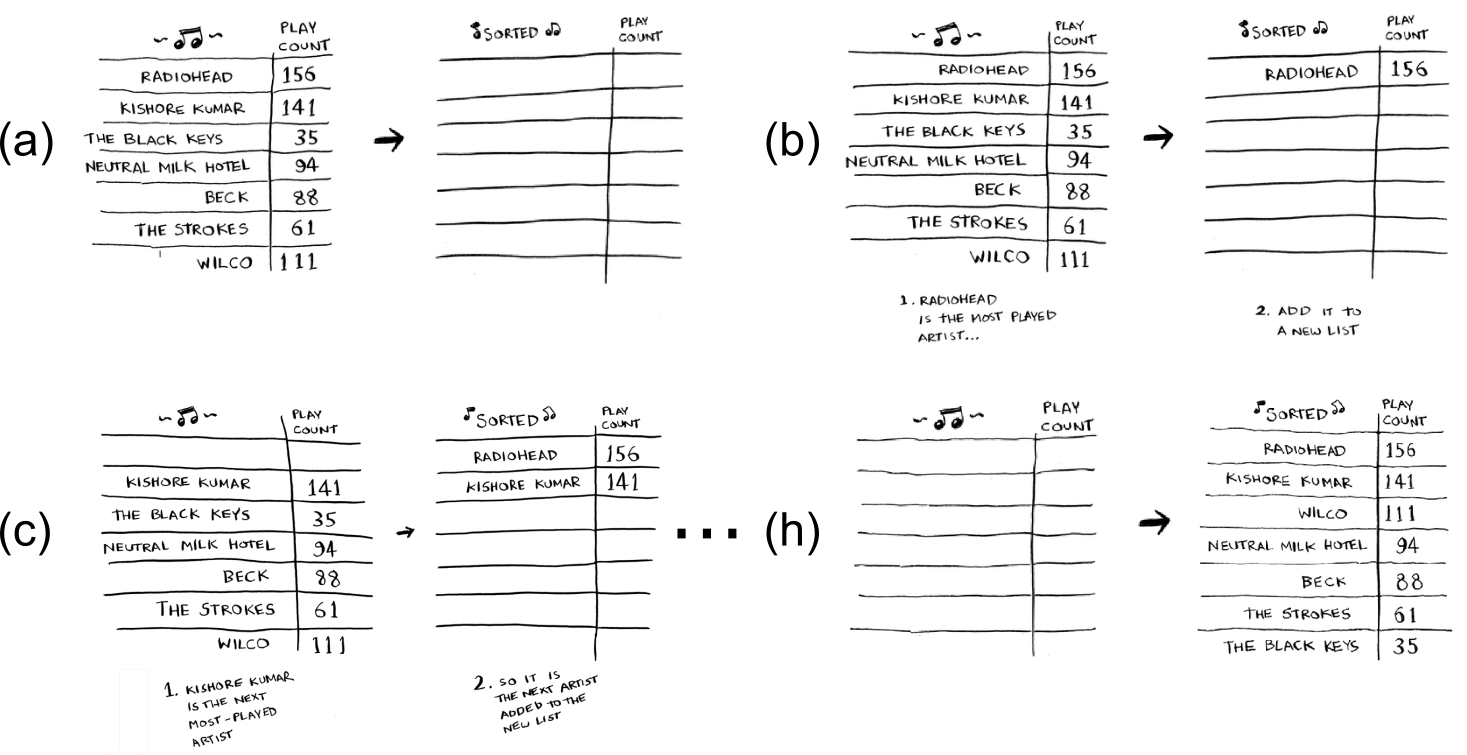 (a)
PLAY
COUNT
RADIOHEAD 156
KISHORE KUMAR 141
THE BLACK KEYS 35
NEUTRAL MILK HOTEL 94
BECK 88
THE STROKES 61
WILCO 111
SORTED
PLAY
COUNT
(b)
PLAY
COUNT
RADIOHEAD 156
KISHORE KUMAR 141
THE BLACK KEYS 35
NEUTRAL MILK HOTEL 94
BECK 88
THE STROKES 61
WILCO 111
1. RADIOHEAD
IS THE MOST PLAYED
ARTIST...
SORTED
PLAY
COUNT
RADIOHEAD 156
2. ADD IT TO
A NEW LIST
(c)
PLAY
COUNT
KISHORE KUMAR 141
THE BLACK KEYS 35
NEUTRAL MILK HOTEL 94
BECK 88
THE STROKES 61
WILCO 111
1. KISHORE KUMAR
IS THE NEXT
MOST-PLAYED
ARTIST
SORTED
PLAY
COUNT
RADIOHEAD 156
KISHORE KUMAR 141
2. SO IT IS
THE NEXT ARTIST
ADDED TO THE
NEW LIST
...
(h)
PLAY
COUNT
SORTED
PLAY
COUNT
RADIOHEAD 156
KISHORE KUMAR 141
WILCO 111
NEUTRAL MILK HOTEL 94
BECK 88
THE STROKES 61
THE BLACK KEYS 35